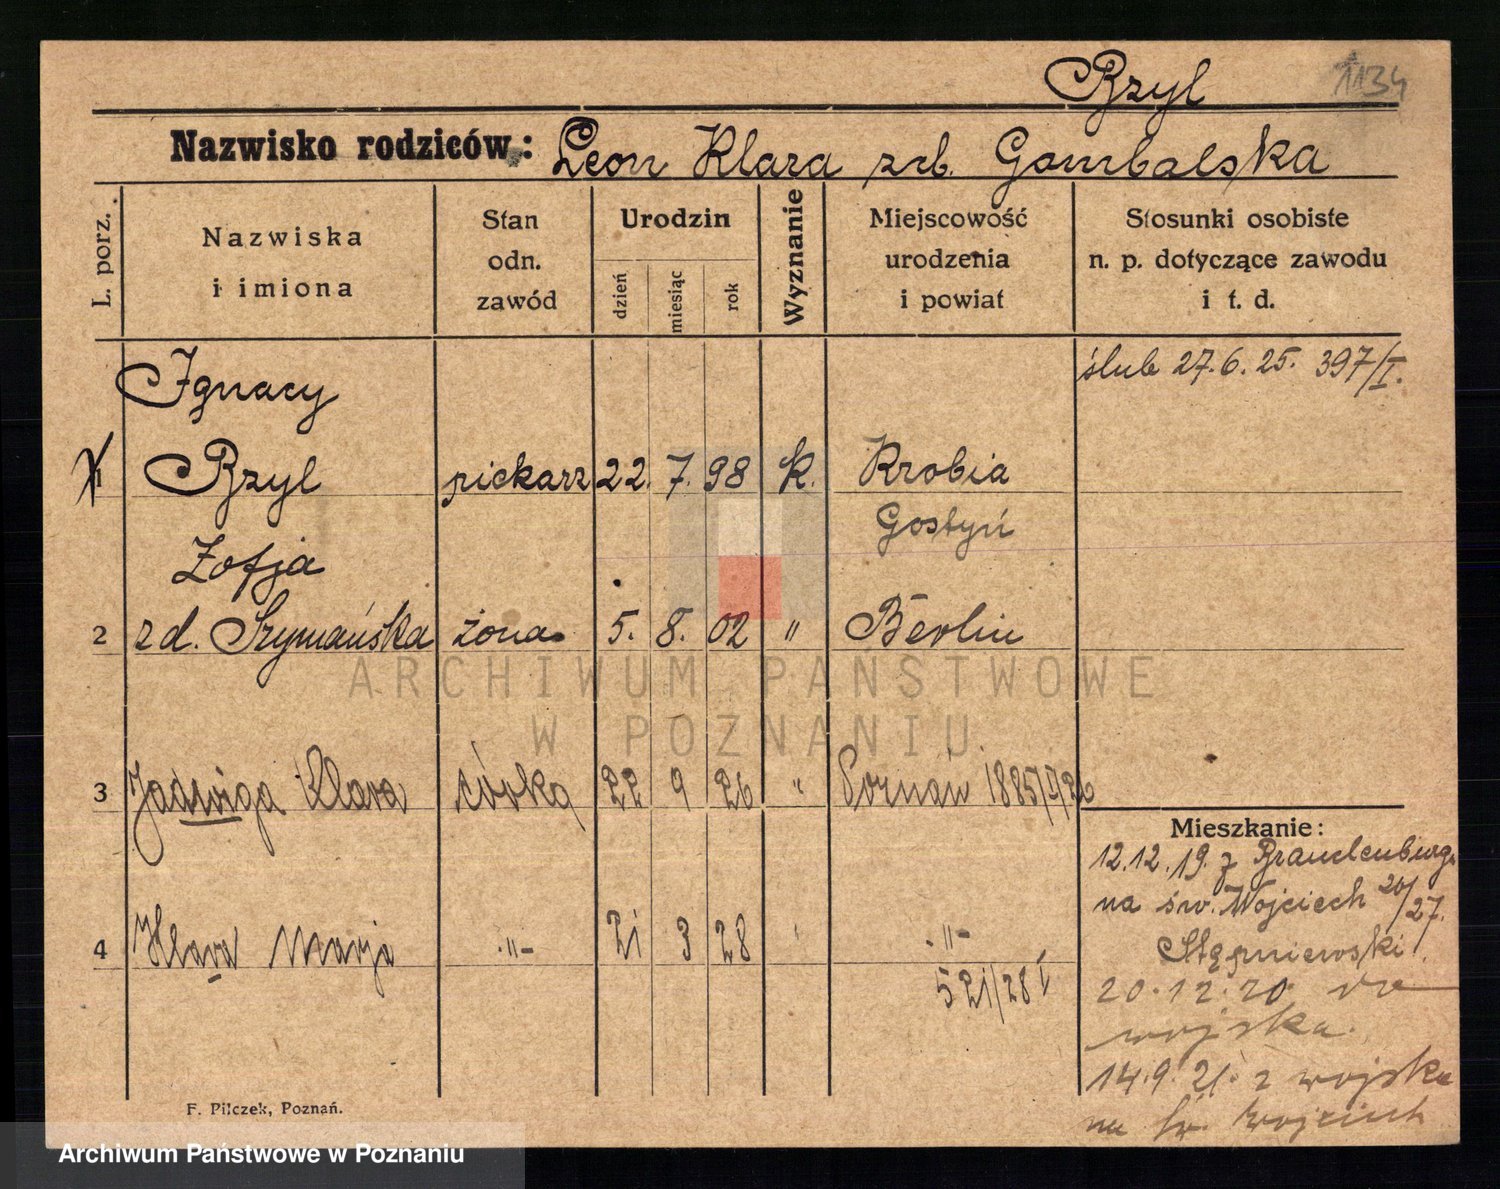 Bzyl 1134
Nazwisko rodziców: Leon Klara zrb. Gombalska
L. porz.
Nazwiska
i imiona
Stan
odn.
zawód
Urodzin
dzień
miesiąc
rok
Wyznanie
Miejscowość
urodzenia
i powiat
Stosunki osobiste
n. p. dotyczące zawodu
i t. d.
Ignacy
ślub 27.6.25. 397/I.
1 Bzyl piekarz 22. 7. 98 K. Krobia
Gostyń
Zofja
2 z d. Szymańska żona 5. 8. 02 " Berlin
ARCHIWUM PAŃSTWOWE
W POZNANIU
3 Jadwiga Klara córka 22 9 26 " Poznań
4 Klara Marja -"- 21 3 28 -"-
521/28 I
Mieszkanie:
12.12.19. z Brandenburg
na św. Wojciech 26/27.
Stępniewski
20.12.20 do
wojska.
14.9.21. z wojska
na św. Wojciech
F. Pilczek, Poznań.
Archiwum Państwowe w Poznaniu